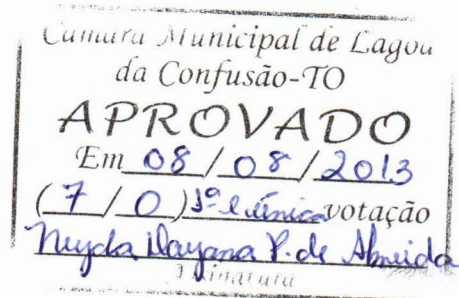 Camara Municipal de Lagoa
da Confusão-TO
APROVADO
Em 08/08/2013
(7/0) 1ª e única votação
Neyda Dayana P. de Almeida
Assinatura